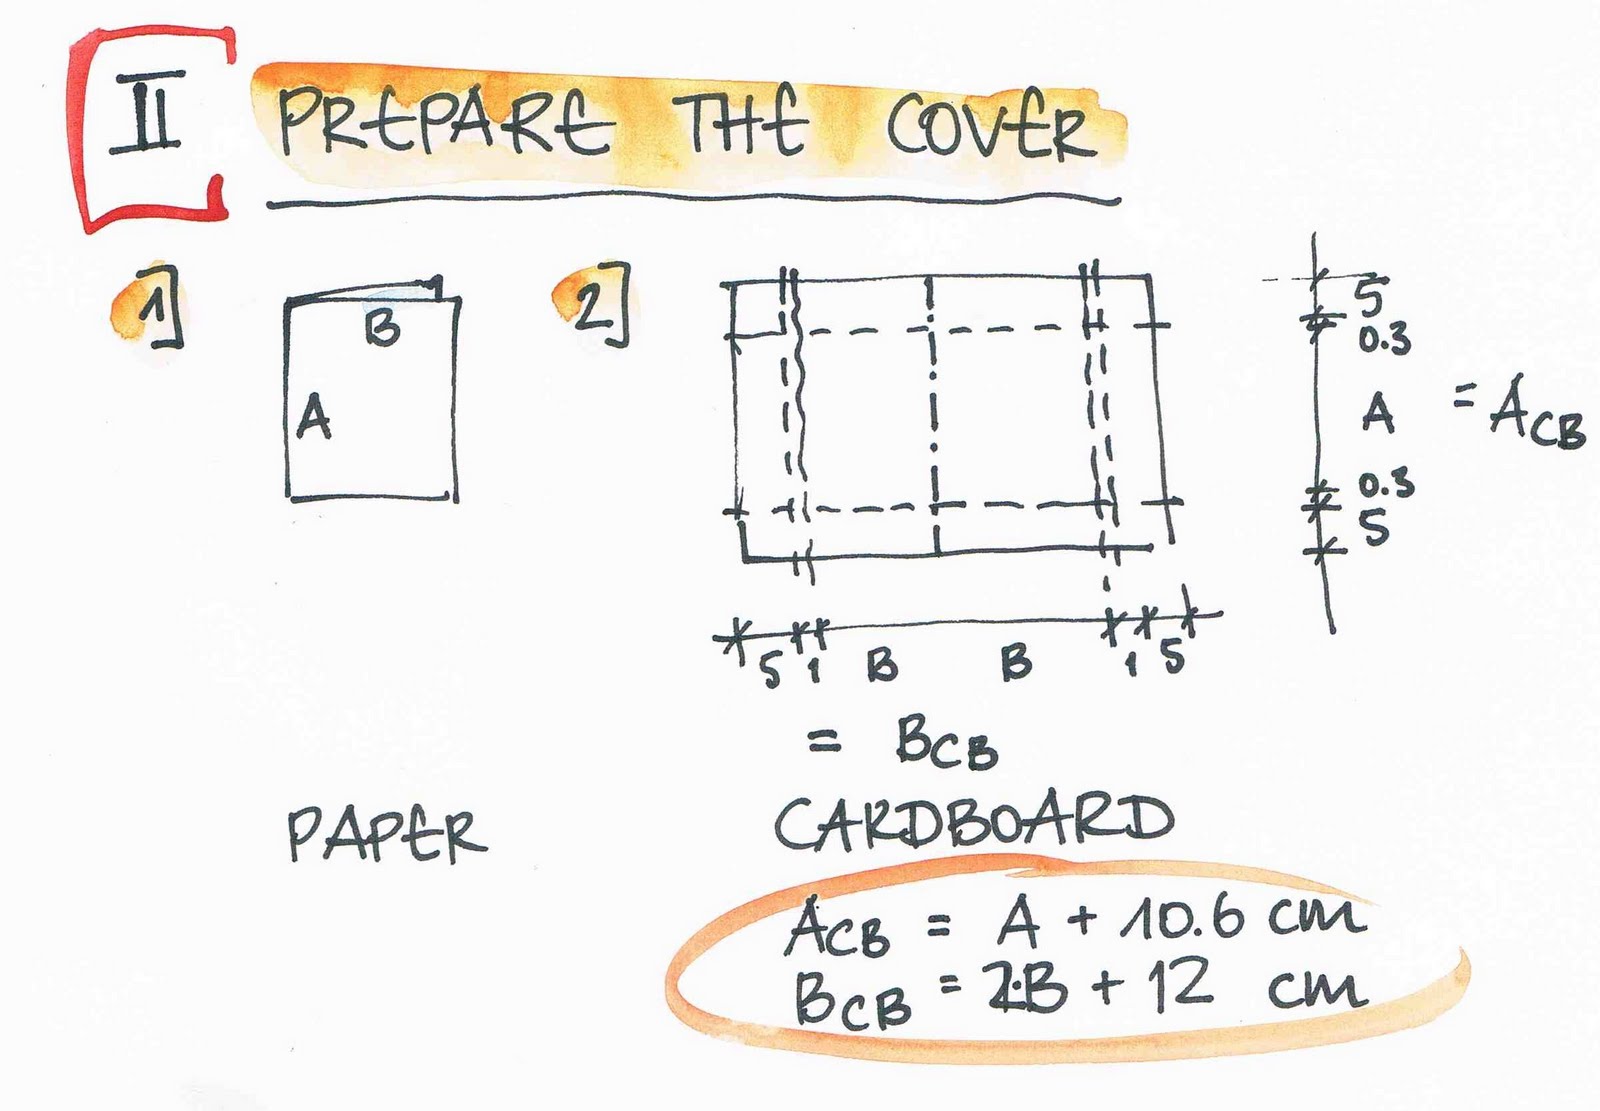 II PREPARE THE COVER
1]
B
A
2]
5
0.3
A = A CB
0.3
5
5 1 B B 1 5
= B CB
PAPER
CARDBOARD
A CB = A + 10.6 cm
B CB = 2·B + 12 cm